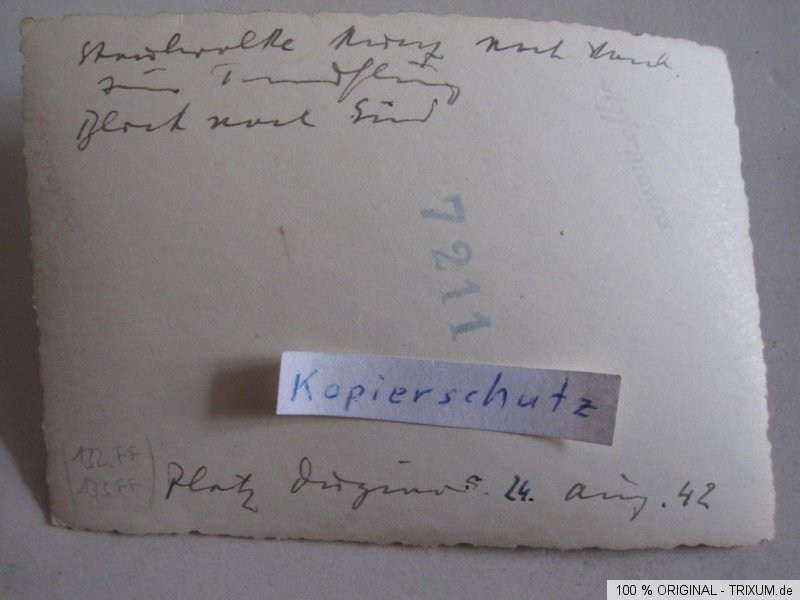 Staubwolke kurz nach
zum
Blick nach Süd
7211
Kopierschutz
132.FF
133.FF
Platz 24. Aug. 42
100 % ORIGINAL - TRIXUM.de